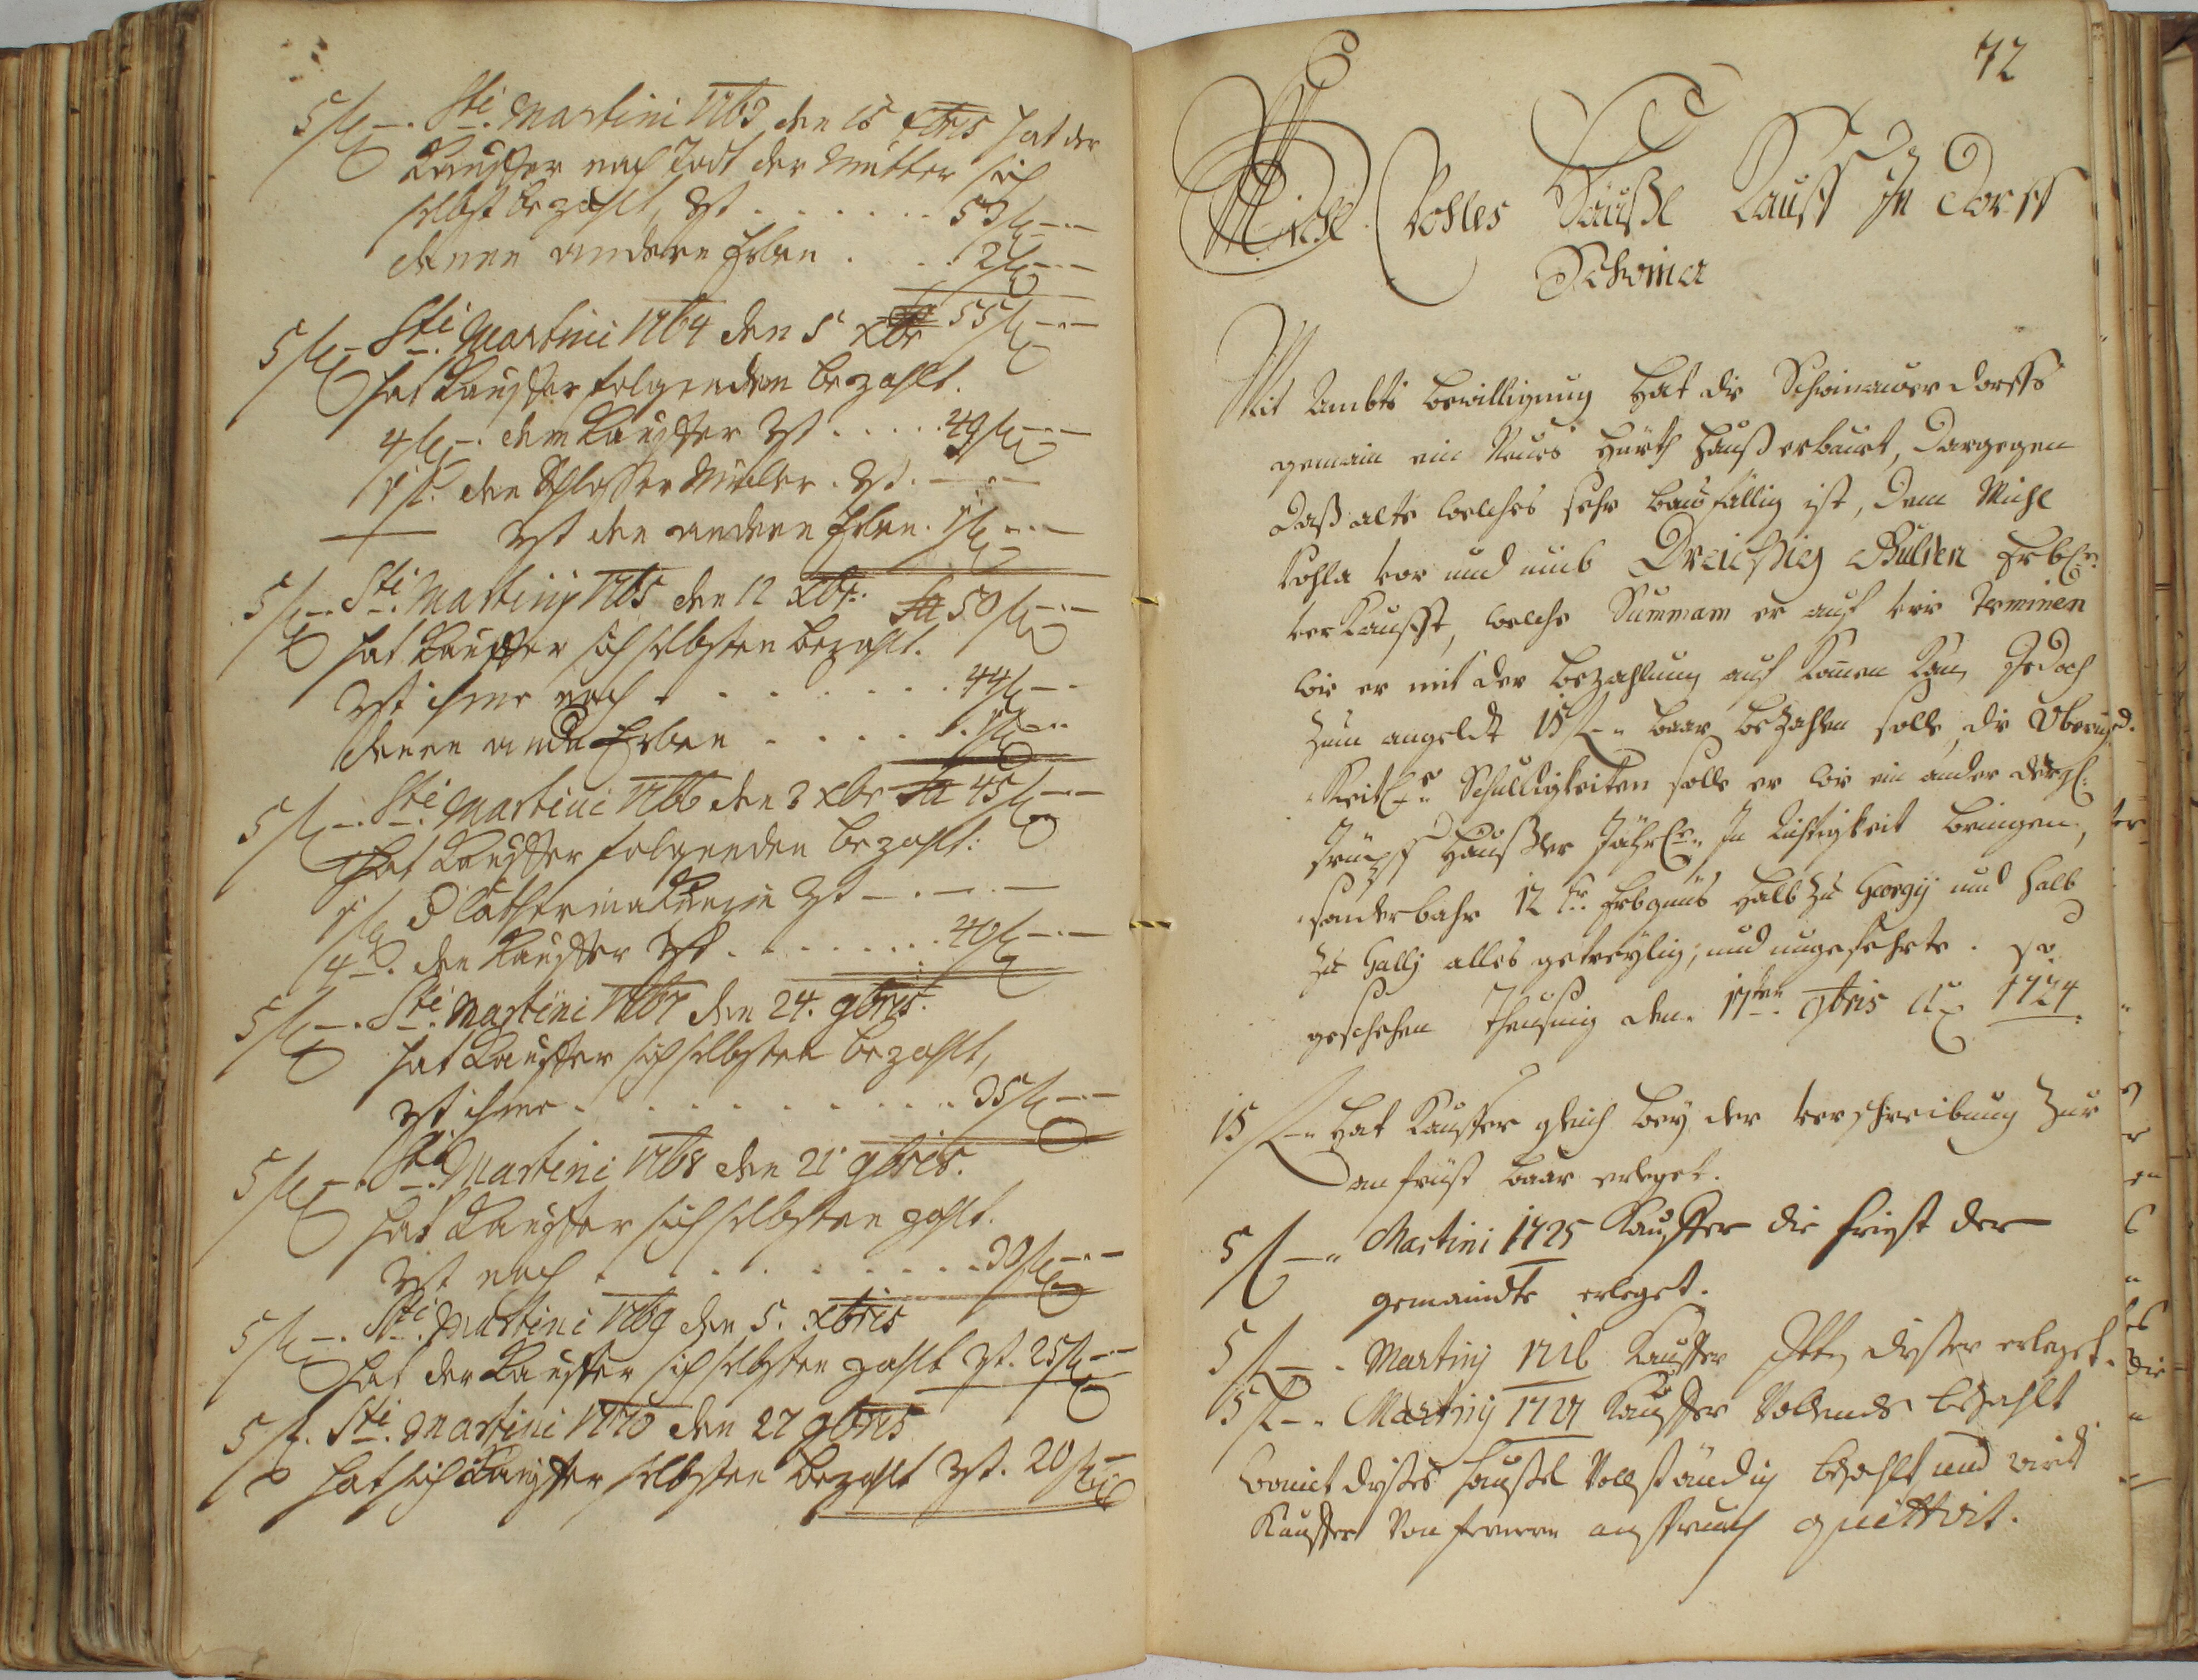 5 f – Sti. Martini 1763 den 15 xbris hat der
Kauffer nach Todt der Mutter sich
selbst bezahlt, Rst . . . . . . 53 f – –
denen andern Erben . . . . 2 f – –
55 f – –
5 f – Sti. Martini 1764 den 5t xbr
hat Kauffer folgenden bezahlt.
4 f – dem Kauffer Rst . . . . . 49 f – –
1 f. den Schlosser Müller . Rst. – –
Rst den andern Erben . 1 f – –
Sa 50 f – –
5 f – Sti. Martiny 1765 den 12 xbr.
hat Kauffer sich selbsten bezahlt.
Rst ihme noch . . . . . . . 44 f – –
denen andern Erben . . . . . 1 f – –
Sa 45 f – –
5 f – Sti. Martini 1766 den 3 xbr
Hat Kauffer folgenden bezahlt:
1 f Catharina Rst – . –
4 –. den Kauffer Rst . . . . . . . 40 f – –
5 f – Sti. Martini 1767 den 24. 9bris.
hat Kauffer sich selbsten bezahlt,
Rst ihme . . . . . . . . . . . 35 f – –
5 f – Sti. Martini 1768 den 21 9bris.
hat Kauffer sich selbsten zahlt.
Rst noch . . . . . . . . . . 30 f – –
5 f – Sti. Martini 1769 den 5. xbris
Hat der Kauffer sich selbsten zahlt Rst. 25 f – –
5 f. Sti. Martini 1770 den 27 9bris
hat sich Kauffer selbsten bezahlt Rst. 20 f –
72
Michl Pohles Häußl Kauff In Dorff
Schoina
Mit Ambts bewilligung hat die Schoinauer Dorffs
gemain ein Neues Hürth Hauß erbauet, dargegen
daß alte welches sehr baufällig ist, dem Michl
Pohla vor und umb Dreißig Gulden
verkaufft, welche Summam er auf vier Terminen
wie er mit der bezahlung auf komen kan, Jedoch
zum angeldt 15 f – baar bezahlen solle, die
Schulligkeiten solle er wie ein ander
Häußler Jährl. In Richtigkeit bringen,
sonderbahr 12 kr. Erbzinns halb zu Georgij und halb
zu Gallj alles getreylig, und ungefehrte. So
geschehen Theusing den 17ten 9bris Ao 1724
15 f – hat Kauffer gleich bey der verschreibung zur
anfrist baar erleget.
5 f – Martini 1725 Kauffer die frist der
gemaindte erleget.
5 f – Martinj 1726 Kauffer dißer erleget.
5 f – Martinij 1727 Kauffer Vollends bezahlt
womit dißes Haußel Vollständig bezahlt und wird
Kauffer Von fernern anspruch quittirt.